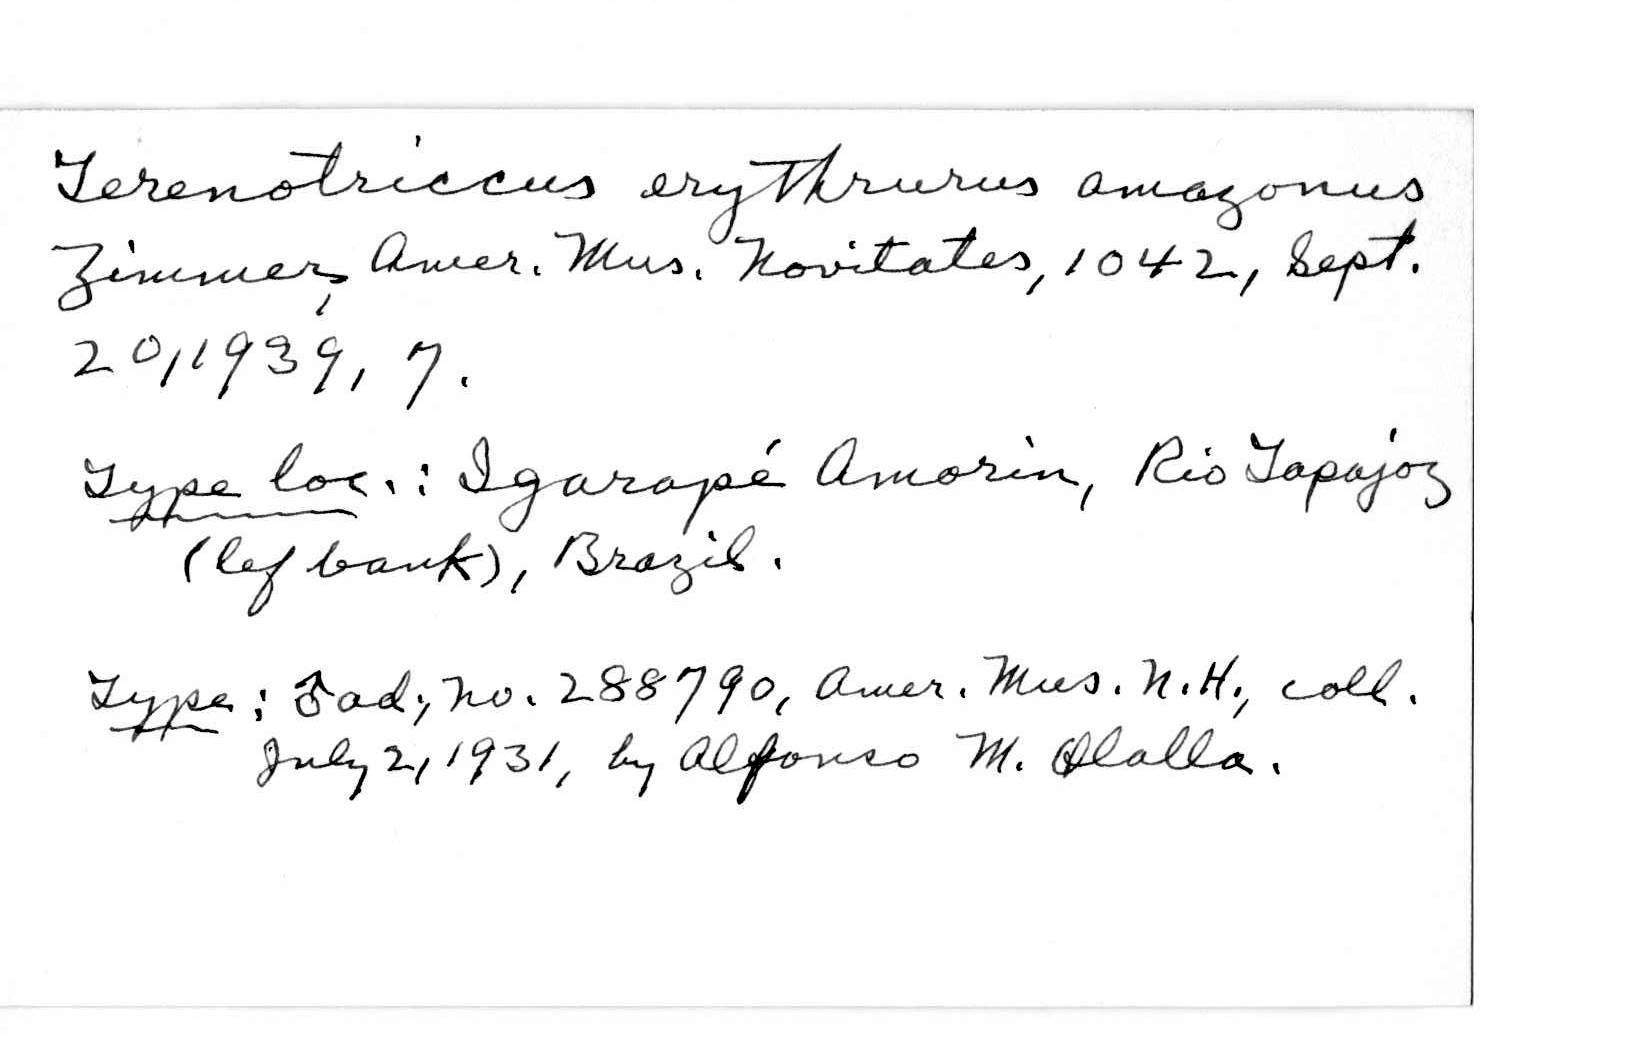 Terenotriccus erythrurus amazonus
Zimmer, Amer. Mus. Novitates, 1042, Sept.
20, 1939, 7.
Type loc.: Igarapé Amorin, Rio Tapajoz
(lef bank), Brazil.
Type: ♂ ad; no. 288790, Amer. Mus. N.H., coll.
July 2, 1931, by Alfonso M. Olalla.